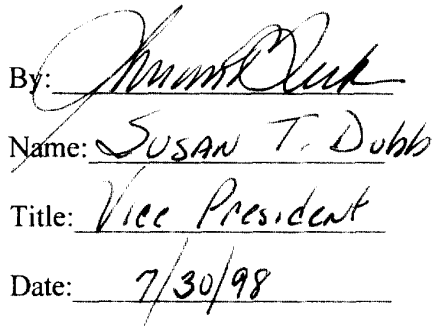 By:
Name: Susan T. Dubb
Title: Vice President
Date: 7/30/98